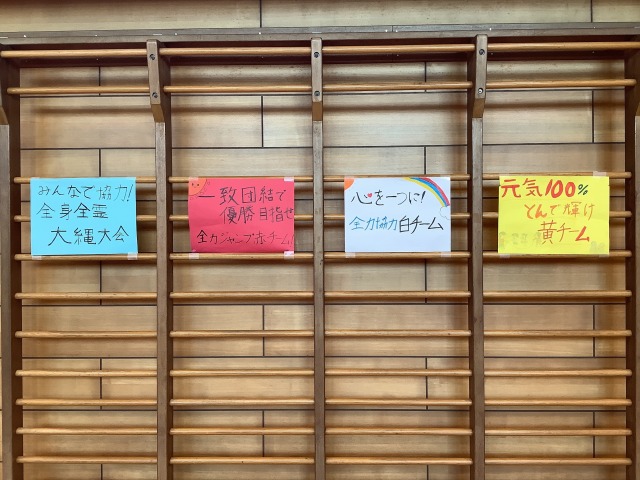 みんなで協力!
全身全霊
大縄大会
一致団結で
優勝目指せ
全力ジャンプ赤チーム!
心を一つに!
全力協力白チーム
元気100%
とんで輝け
黄チーム